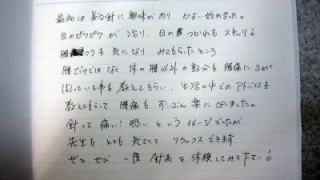 最初は美容針に興味があり かよい始めました。
目のピクピクが治り、目の つかれもスッキリ!
腰 も気になり みてもらったところ
腰だけではなく 体の腰以外の部分も腰痛に
いる事も教えてもらい、生活の中でのアドバイスも
教えてもらって 腰痛も ずいぶん楽になりました。
針って痛い!恐い というイメージでしたが
先生も とても 気さくで リラックスできます
ぜひ、ぜひ 一度 針灸を体験してみて下さい!